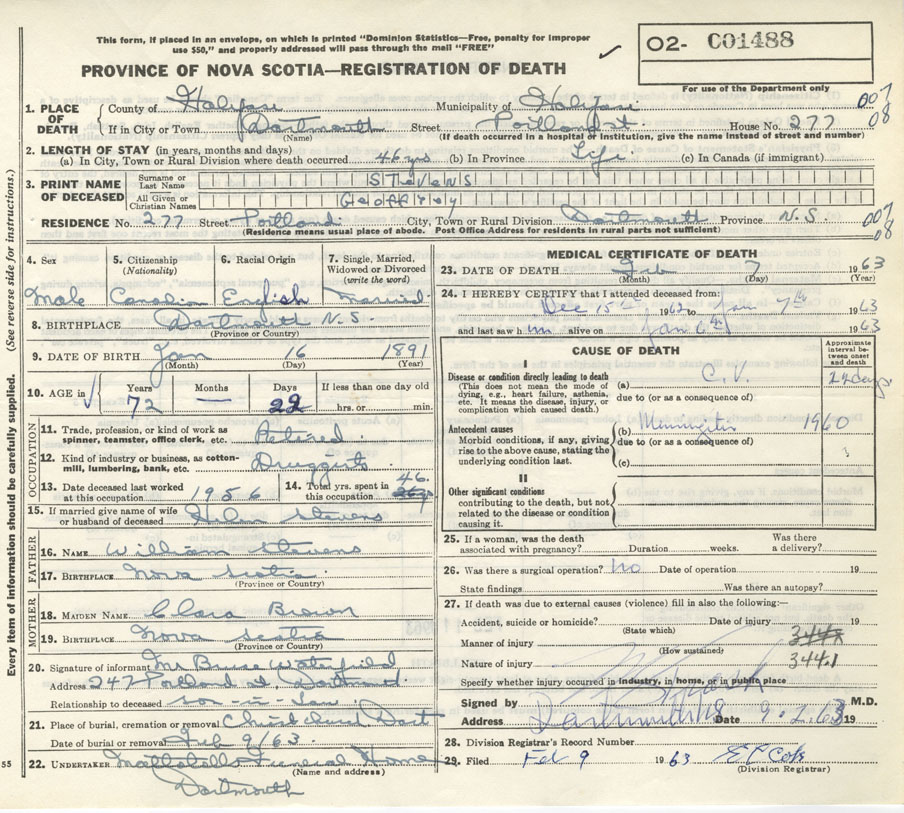 This form, if placed in an envelope, on which is printed "Dominion Statistics—Free, penalty for improper
use $50," and properly addressed will pass through the mail "FREE"
O2- C01488
PROVINCE OF NOVA SCOTIA—REGISTRATION OF DEATH
For use of the Department only
1. PLACE OF DEATH
County of Halifax Municipality of Halifax 007
If in City or Town Dartmouth Street Portland st House No. 277 08
(Name) (If death occurred in a hospital or institution, give the name instead of street and number)
2. LENGTH OF STAY (in years, months and days)
(a) In City, Town or Rural Division where death occurred 46 yrs (b) In Province Life (c) In Canada (if immigrant)
3. PRINT NAME OF DECEASED
Surname or Last Name STevens
All Given or Christian Names Geoffrey
RESIDENCE No. 277 Street Portland City, Town or Rural Division Dartmouth Province N.S. 007
(Residence means usual place of abode. Post Office Address for residents in rural parts not sufficient) 08
4. Sex 5. Citizenship (Nationality) 6. Racial Origin 7. Single, Married, Widowed or Divorced (write the word)
Male Canadian English Married
8. BIRTHPLACE Dartmouth N.S.
(Province or Country)
9. DATE OF BIRTH Jan 16 1891
(Month) (Day) (Year)
10. AGE in Years Months Days If less than one day old
72 — 22 hrs. or min.
OCCUPATION
11. Trade, profession, or kind of work as spinner, teamster, office clerk, etc. Retired
12. Kind of industry or business, as cotton-mill, lumbering, bank, etc. Druggists
13. Date deceased last worked at this occupation 1956
14. Total yrs. spent in this occupation 46.
15. If married give name of wife or husband of deceased Helen Stevens
FATHER
16. NAME William Stevens
17. BIRTHPLACE Nova Scotia
(Province or Country)
MOTHER
18. MAIDEN NAME Clara Brown
19. BIRTHPLACE Nova Scotia
(Province or Country)
20. Signature of informant Mr Bruce Waterfield
Address 247 Portland st, Dartmouth
Relationship to deceased son-in-Law
21. Place of burial, cremation or removal Christ Church Dart
Date of burial or removal Feb 9/63.
22. UNDERTAKER Mattatalls Funeral Home
(Name and address)
Dartmouth
MEDICAL CERTIFICATE OF DEATH
23. DATE OF DEATH Feb 7 1963
(Month) (Day) (Year)
24. I HEREBY CERTIFY that I attended deceased from:
Dec 15th 1962 to Jan 7th 1963
and last saw him alive on Jan 6th 1963
CAUSE OF DEATH
Approximate interval between onset and death
I
Disease or condition directly leading to death
(This does not mean the mode of dying, e.g., heart failure, asthenia, etc. It means the disease, injury, or complication which caused death.)
(a) C.V. days
due to (or as a consequence of)
Antecedent causes
Morbid conditions, if any, giving rise to the above cause, stating the underlying condition last.
(b) Meningitis 1960
due to (or as a consequence of)
(c)
II
Other significant conditions
contributing to the death, but not related to the disease or condition causing it.
25. If a woman, was the death associated with pregnancy? Duration weeks. Was there a delivery?
26. Was there a surgical operation? no Date of operation 19
State findings Was there an autopsy?
27. If death was due to external causes (violence) fill in also the following:—
Accident, suicide or homicide? Date of injury 19
(State which)
Manner of injury
(How sustained)
Nature of injury 344.1
Specify whether injury occurred in industry, in home, or in public place
Signed by M.D.
Address Dartmouth NS Date 9.2.63 19
28. Division Registrar's Record Number
29. Filed Feb 9 1963
(Division Registrar)
Every item of information should be carefully supplied. (See reverse side for instructions.)
55